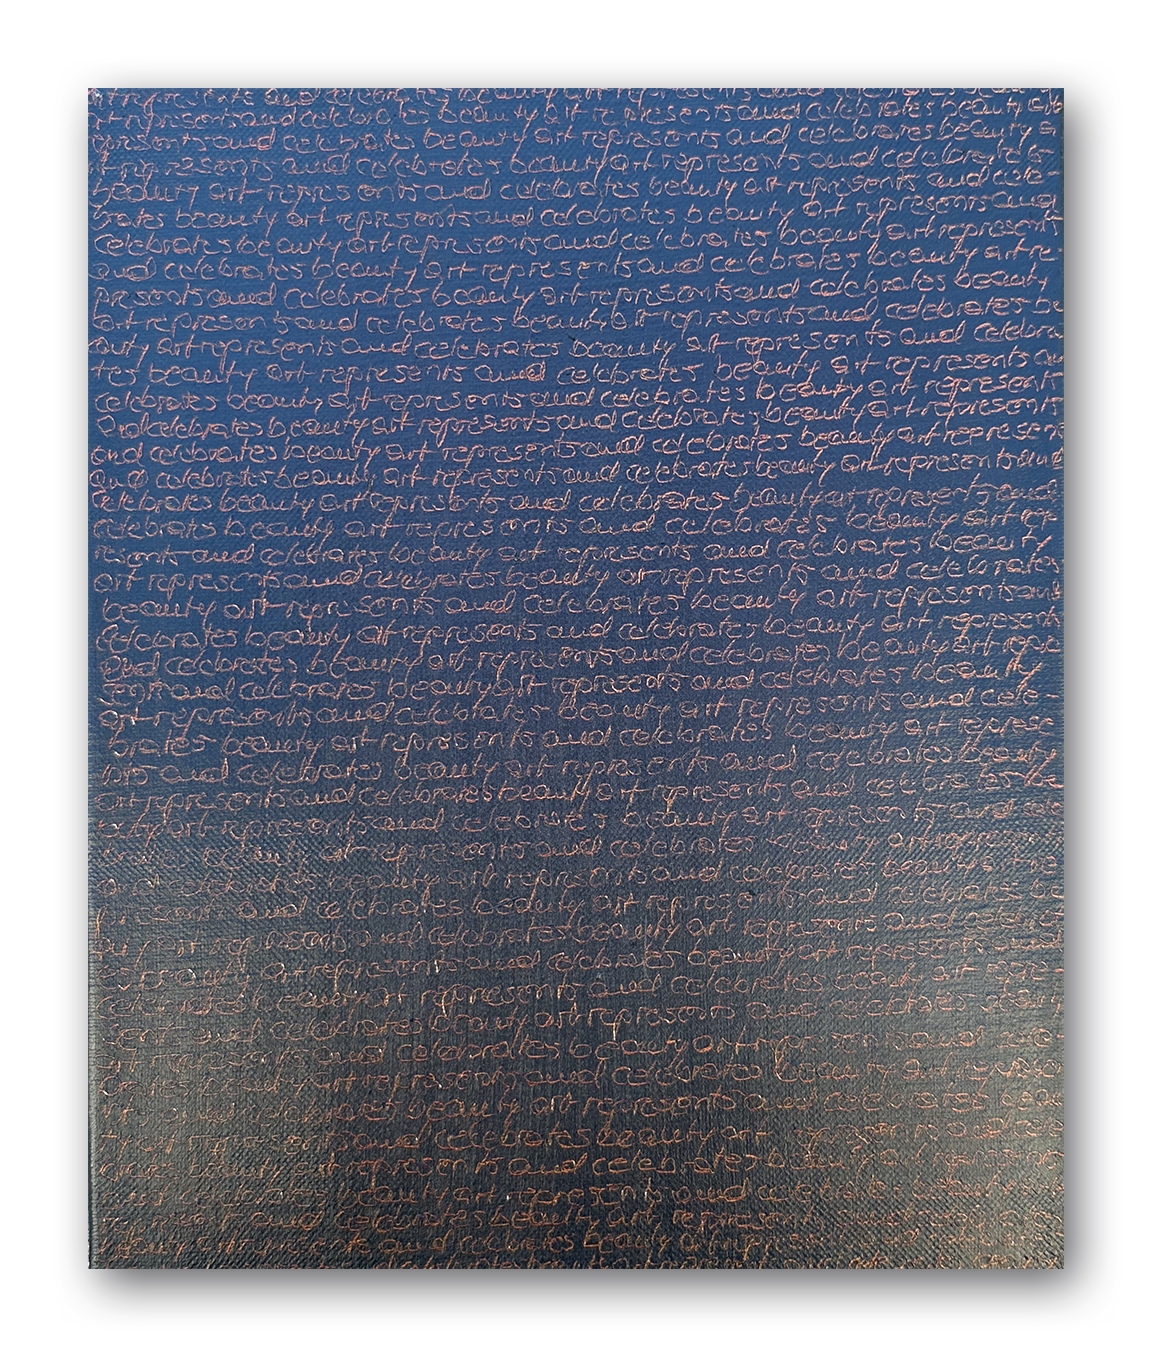 art represents and celebrates beauty art represents and celebrates beauty
art represents and celebrates beauty art represents and celebrates beauty a
presents and celebrates beauty art represents and celebrates beauty a
represents and celebrates beauty art represents and celebrates
beauty art represents and celebrates beauty art represents and cele-
brates beauty art represents and celebrates beauty art represents and
celebrates beauty art represents and celebrates beauty art represents
and celebrates beauty art represents and celebrates beauty art re
presents and celebrates beauty art represents and celebrates beauty
art represents and celebrates beauty art represents and celebrates be
auty art represents and celebrates beauty art represents and celebra
tes beauty art represents and celebrates beauty art represents an
celebrates beauty art represents and celebrates beauty art represents
and celebrates beauty art represents and celebrates beauty art represents
and celebrates beauty art represents and celebrates beauty art represen
and celebrates beauty art represents and celebrates beauty art represents and
celebrates beauty art represents and celebrates beauty art represents and
celebrates beauty art represents and celebrates beauty art rep
resents and celebrates beauty art represents and celebrates beauty
art represents and celebrates beauty art represents and celebrates
beauty art represents and celebrates beauty art represents and
celebrates beauty art represents and celebrates beauty art represents
and celebrates beauty art represents and celebrates beauty art rep
sents and celebrates beauty art represents and celebrates beauty
art represents and celebrates beauty art represents and cele-
brates beauty art represents and celebrates beauty art represe
nts and celebrates beauty art represents and celebrates beauty
art represents and celebrates beauty art represents and celebrates
art represents and celebrates beauty art represents and
beauty art represents and celebrates
celebrates beauty art represents and celebrates beauty
and celebrates beauty art represents and celebrates be
art represents and celebrates beauty art represents and
and art represents and celebrates beauty art represents and
celebrates beauty art represents and celebrates beauty art
and celebrates beauty art represents and celebrates
and celebrates beauty art represents and
beauty art represents and celebrates beauty art
celebrates beauty art represents and celebrates
represents and celebrates beauty art
beauty art represents and celebrates beauty
beauty art represents and celebrates
and celebrates beauty art represents
beauty art and celebrates beauty art
celebrates beauty